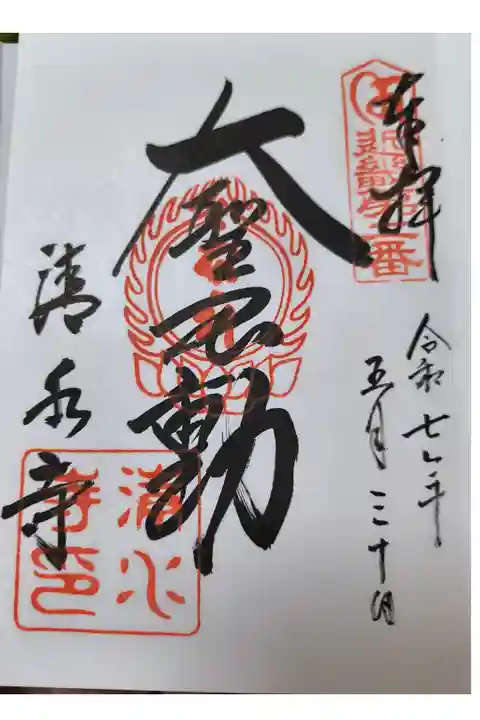 奉拝
令和七年
五月三十日
大聖不動
清水寺
清水
寺印